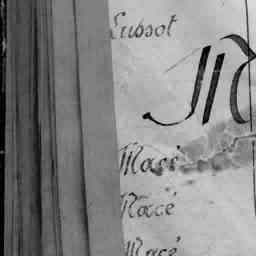 Lussot
M
Macé
Macé
Macé